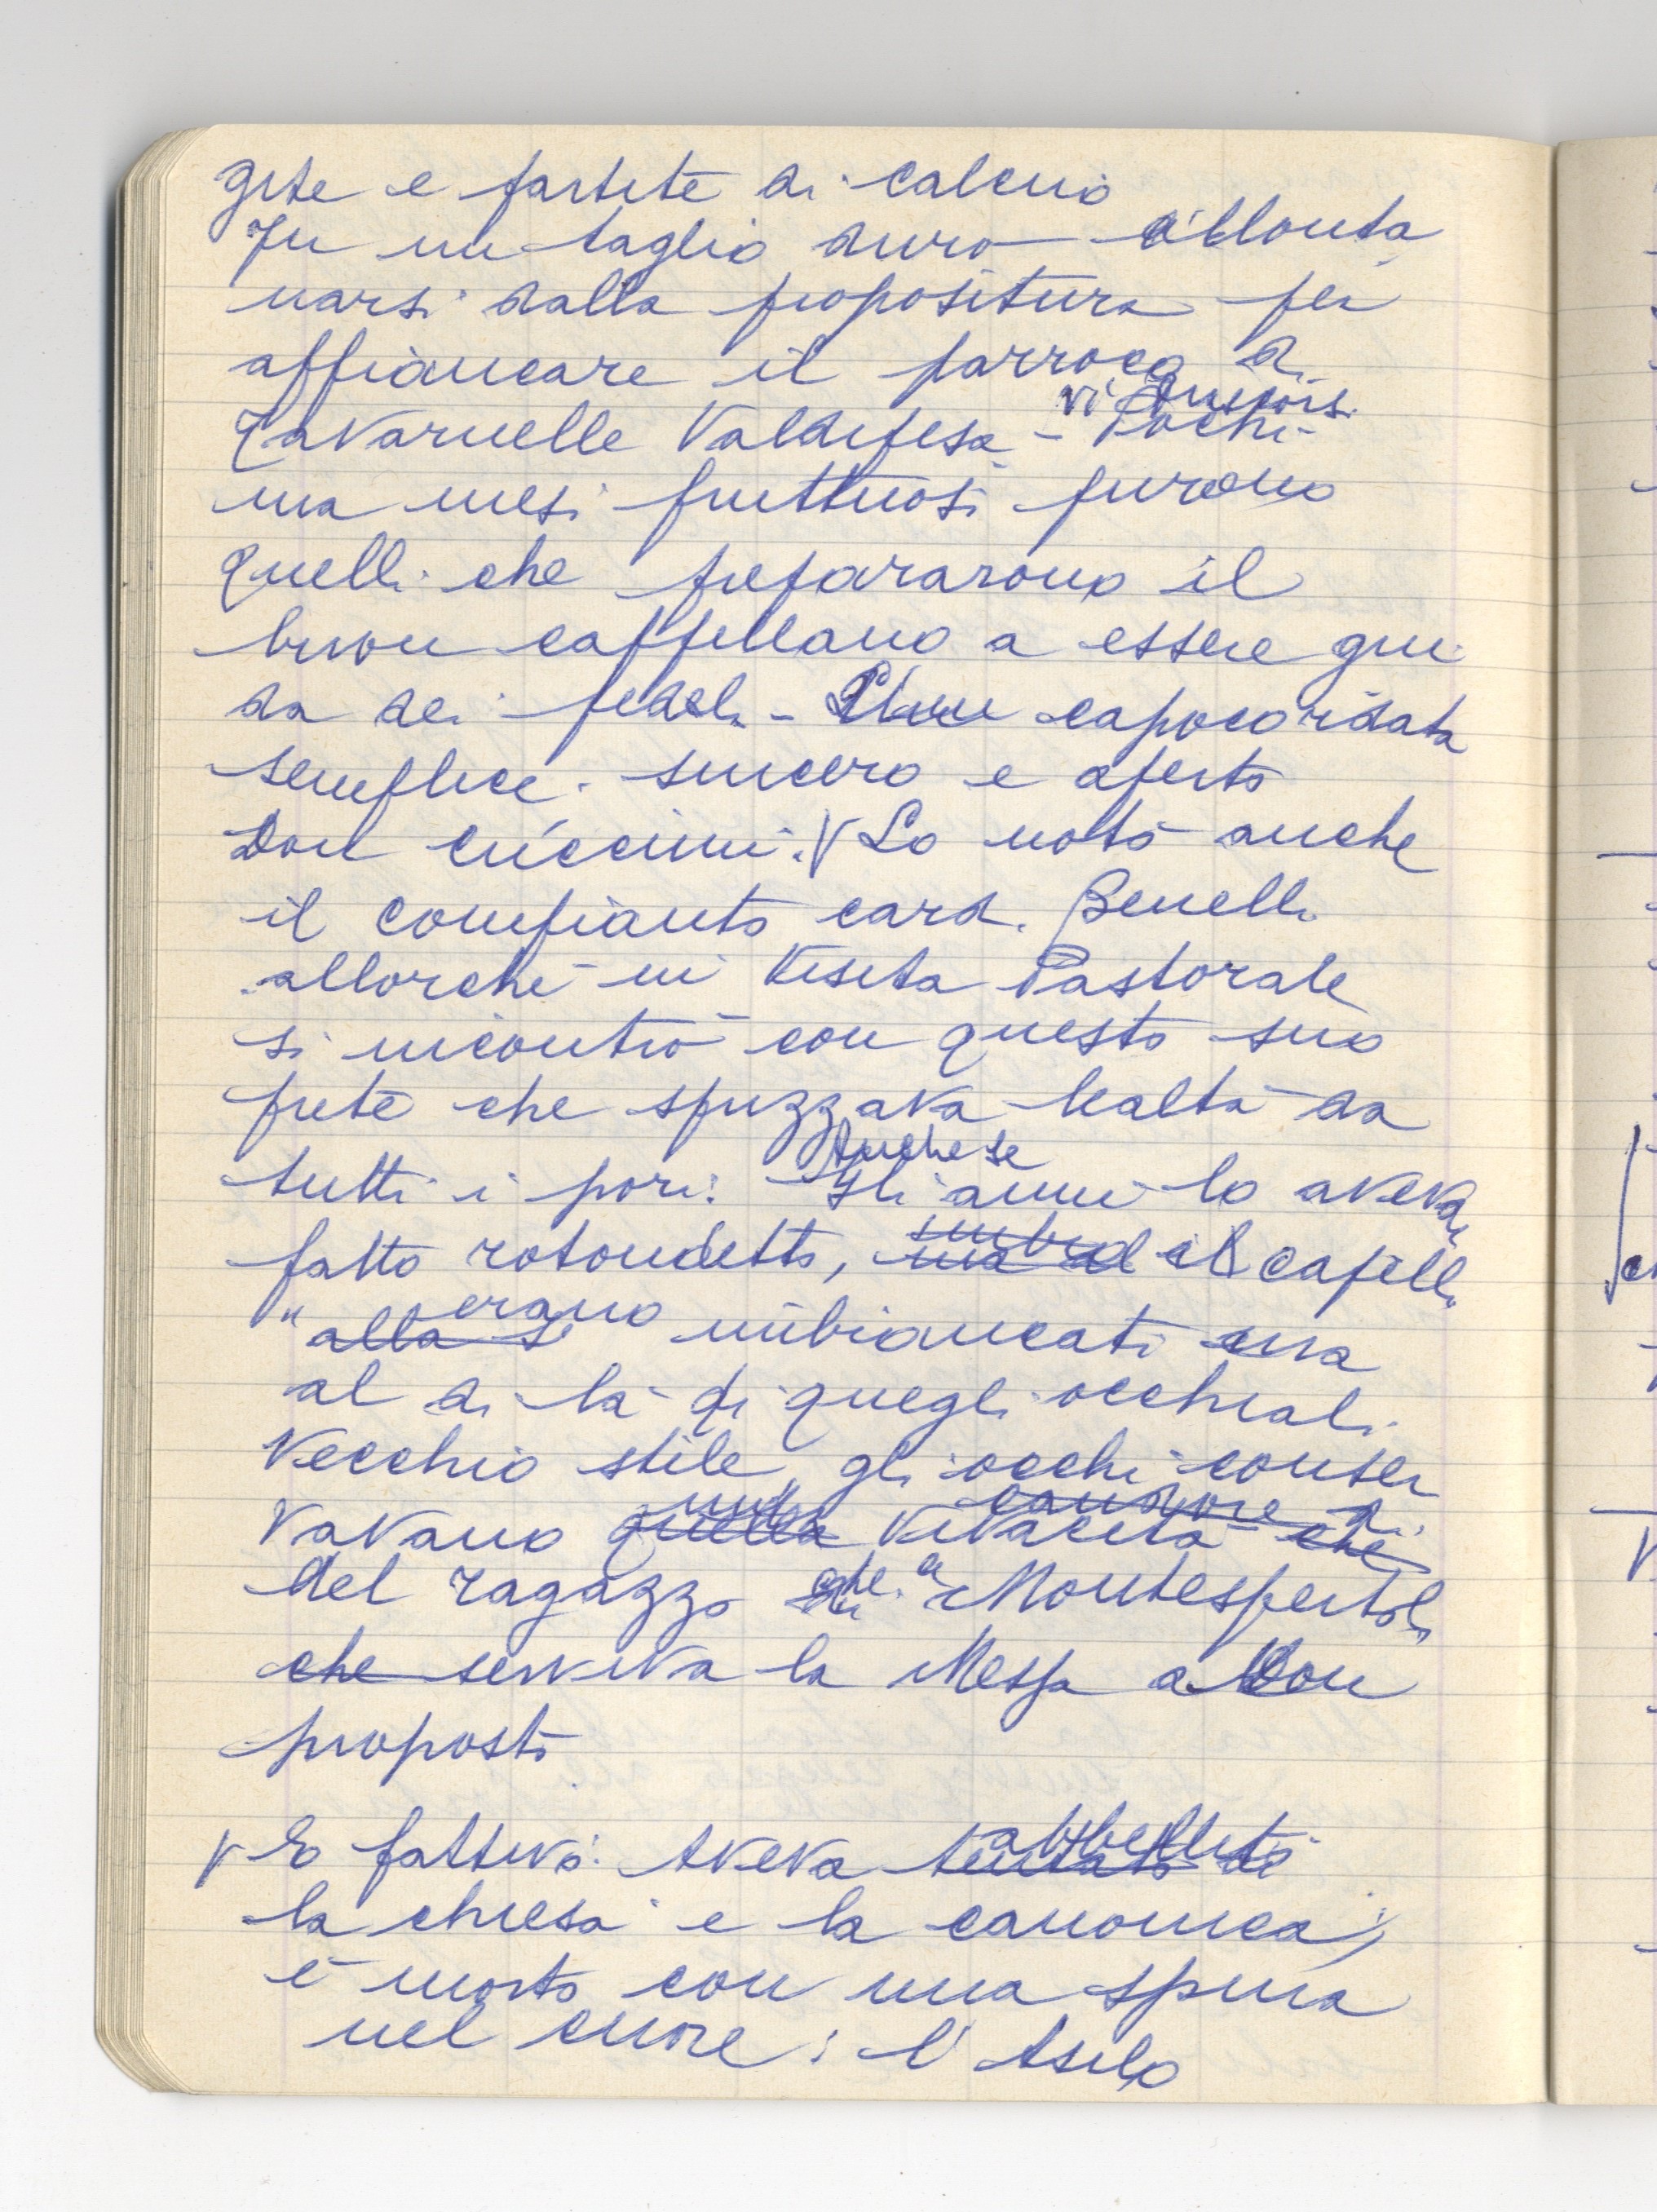 gite e partite di calcio
Fu un taglio duro allonta
narsi dalla propositura per
affiancare il parroco di
Tavarnelle Valdipesa - Pochi
ma mesi fruttuosi furono
quelli che prepararono il
buon cappellano a essere gui
da dei fedeli -
semplice. sincero e aperto
Don Cuccuini. V Lo notò anche
il compianto card. Benelli
allorché in Visita Pastorale
si incontrò con questo suo
prete che sprizzava lealtà da
tutti i pori.
Anche se
gli anni lo aveva
fatto rotondetto, capelli
erano
alla imbiancati ma
al di là di quegli occhiali
Vecchio stile, gli occhi conser
candore di
vavano quella vivacità che
del ragazzo che a Montespertoli
che serviva la Messa a Don
proposto
abbellito
V E fattivo. Aveva tentato di
la chiesa e la canonica,
è morto con una spina
nel cuore: l'Asilo